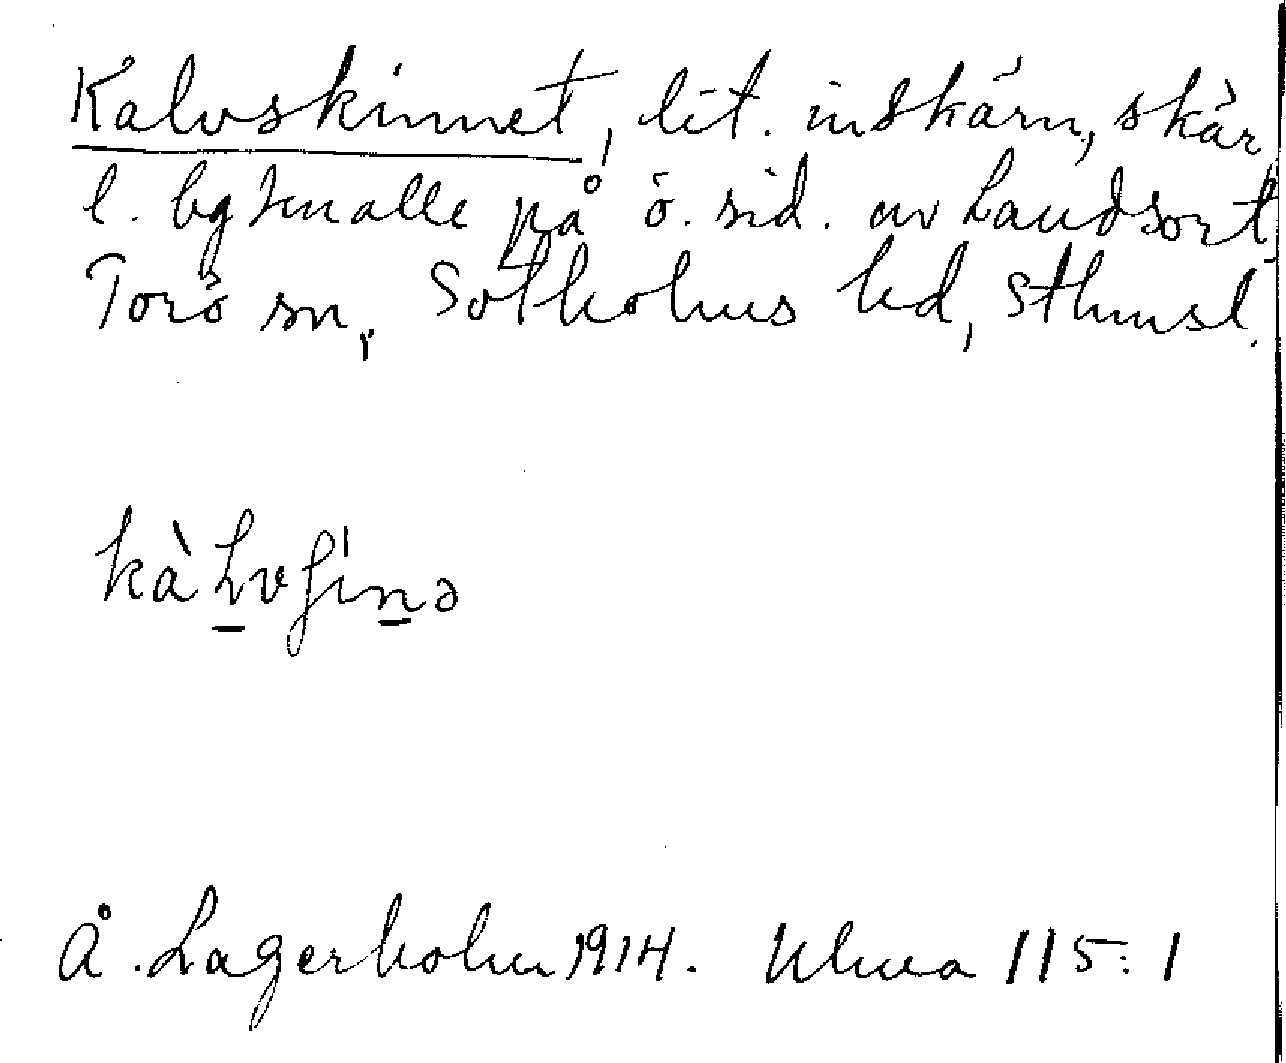 Kalvskinnet, lit. inskärn, skär
l. bgknalle på ö. sid. av Landsort,
Torö sn, Sotholms hd, Sthmsl.
kàLvʃinə
Å. Lagerholm 1914. Ulma 115:1